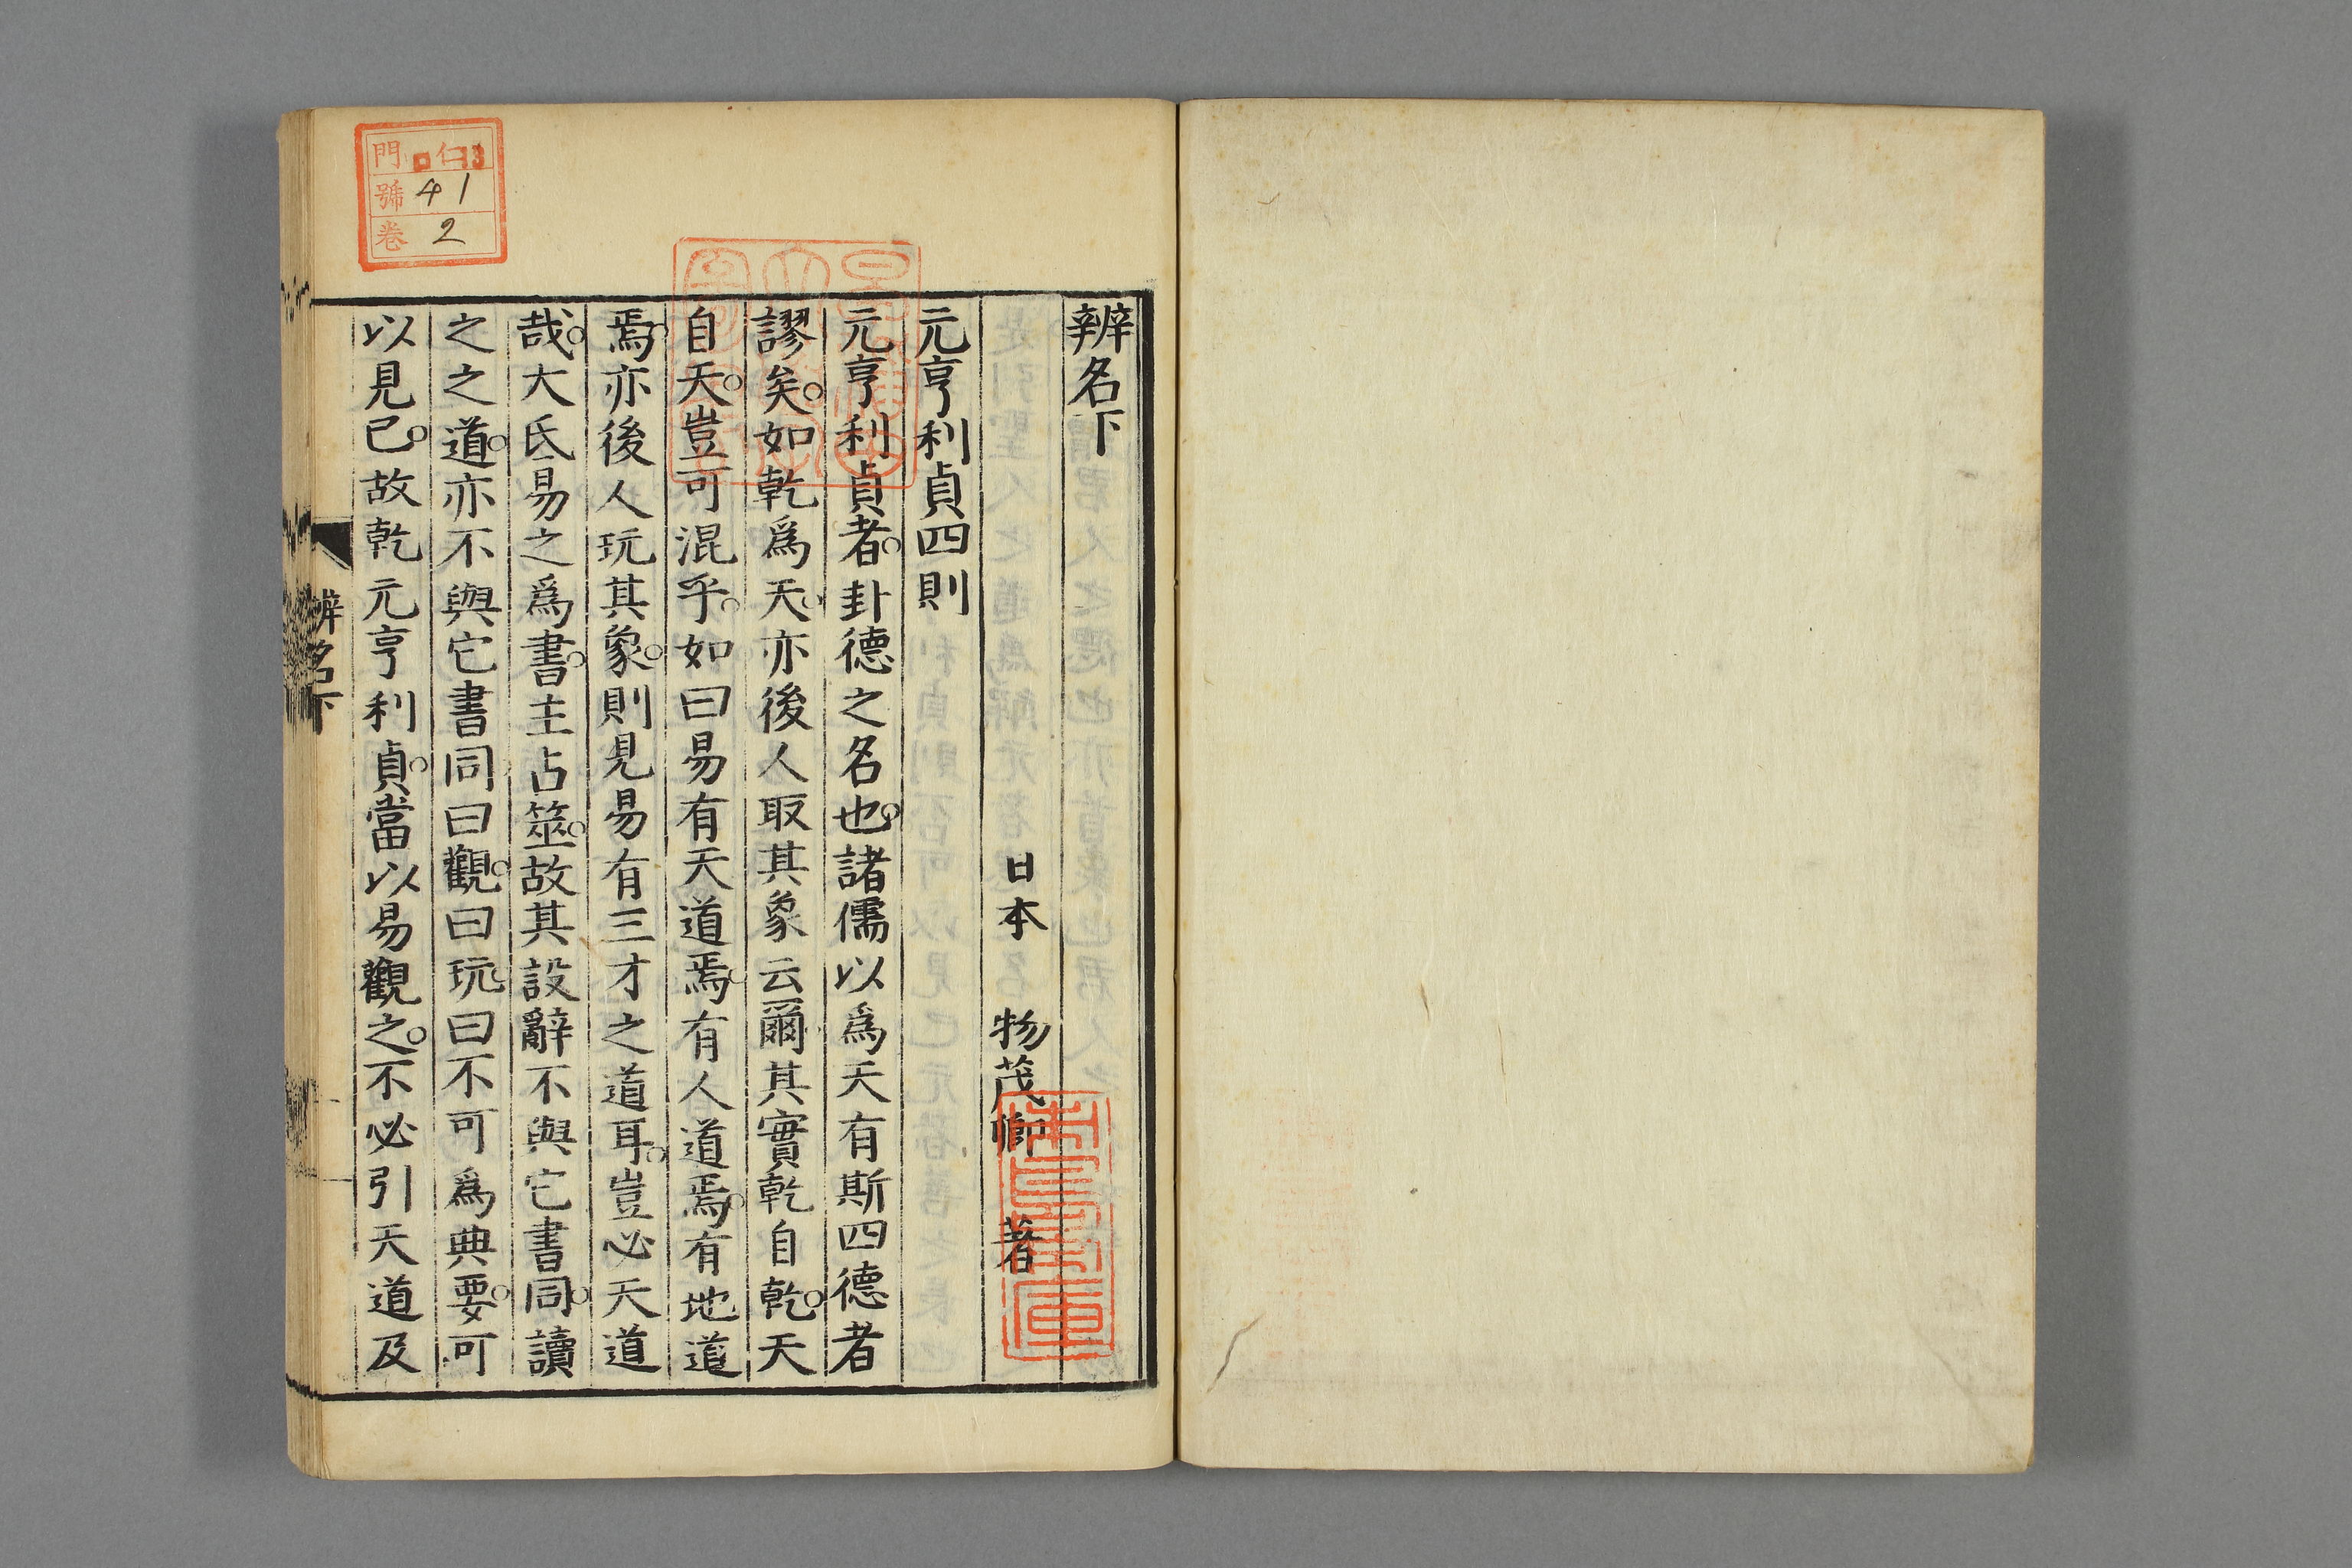 辨名下
日本 物茂卿 著
元亨利貞四則
元亨利貞者。卦德之名也。諸儒以爲天有斯四德者
謬矣。如乾爲天。亦後人取其象云爾。其實乾自乾。天
自天。豈可混乎。如曰易有天道焉。有人道焉。有地道
焉。亦後人玩其象。則見易有三才之道耳。豈必天道
哉。大氐易之爲書。主占筮。故其設辭不與它書同。讀
之之道。亦不與它書同。曰觀。曰玩。曰不可爲典要。可
以見已。故乾元亨利貞。當以易觀之。不必引天道及
辨名下
門 仁13
號 41
卷 2